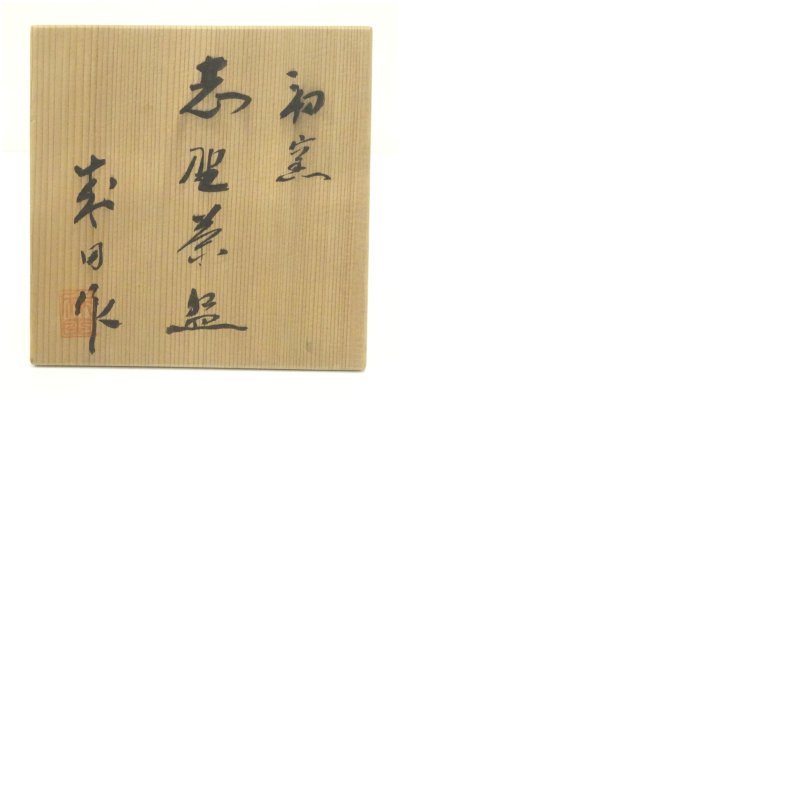 初窯
志野茶盌
寿田作